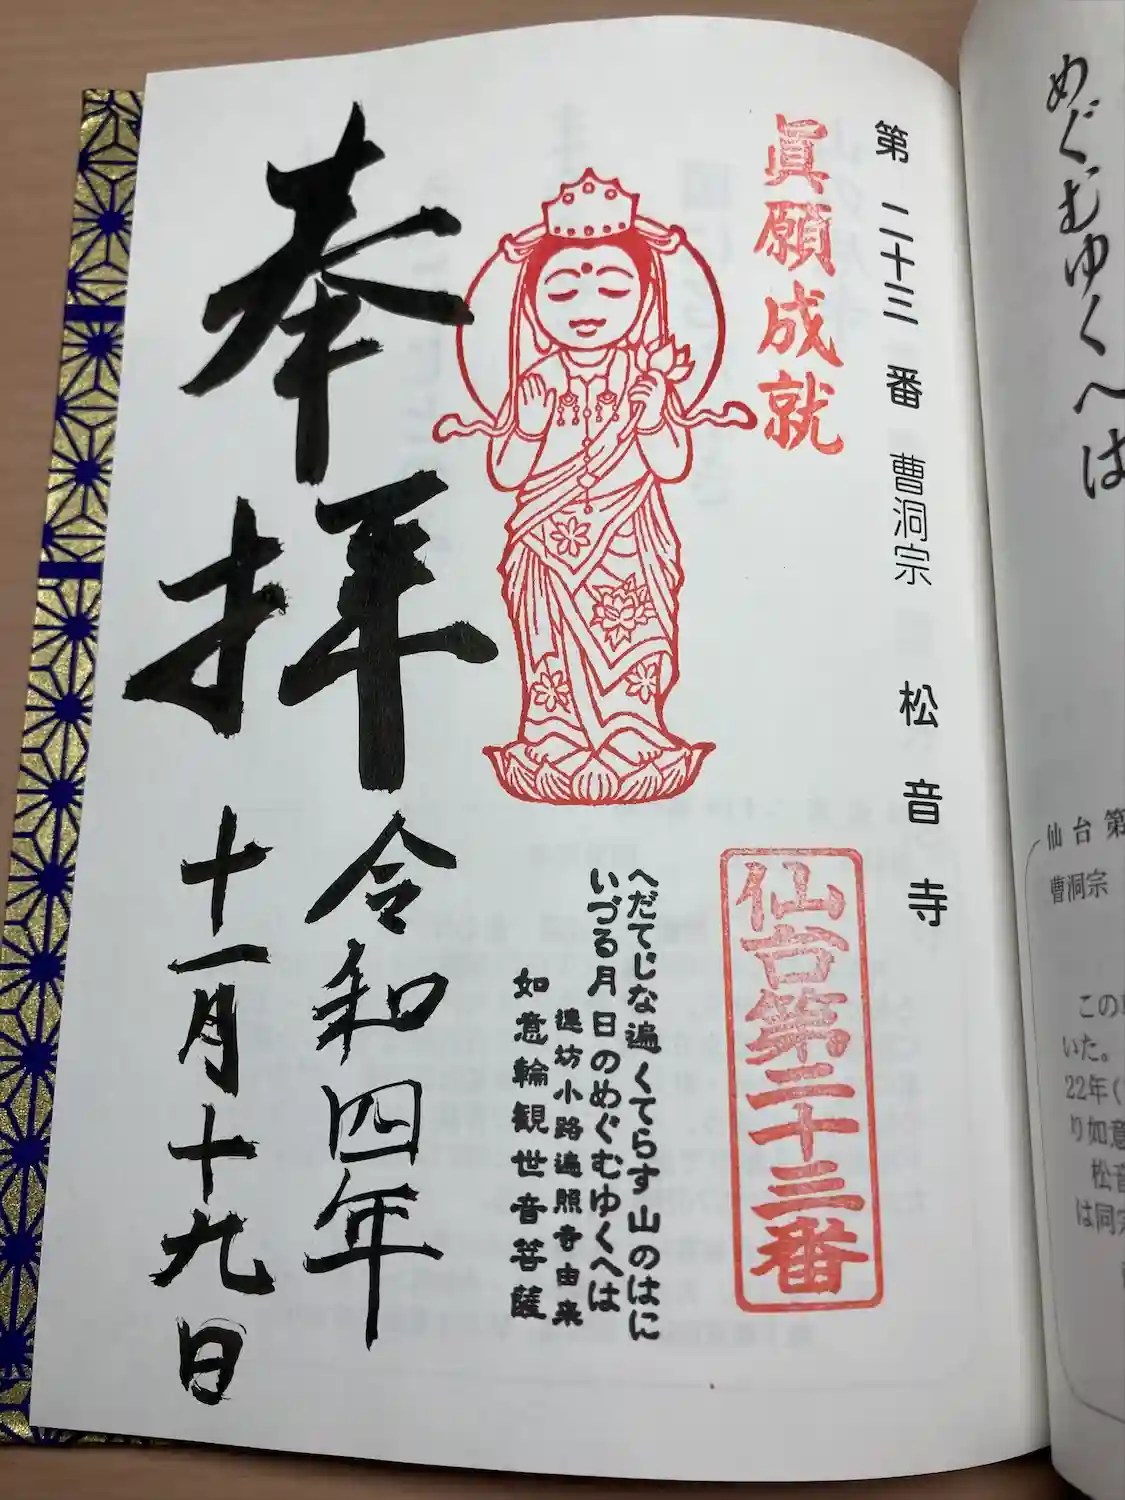 めぐむゆくへは
仙台第
曹洞宗
この
いた。
22年(
り如意
松音
は同宗
第二十三番 曹洞宗 松音寺
眞願成就
仙台第二十三番
へだてじな遍くてらす山のはに
いづる月日のめぐむゆくへは
連坊小路遍照寺由来
如意輪観世音菩薩
奉拝
令和四年
十一月十九日